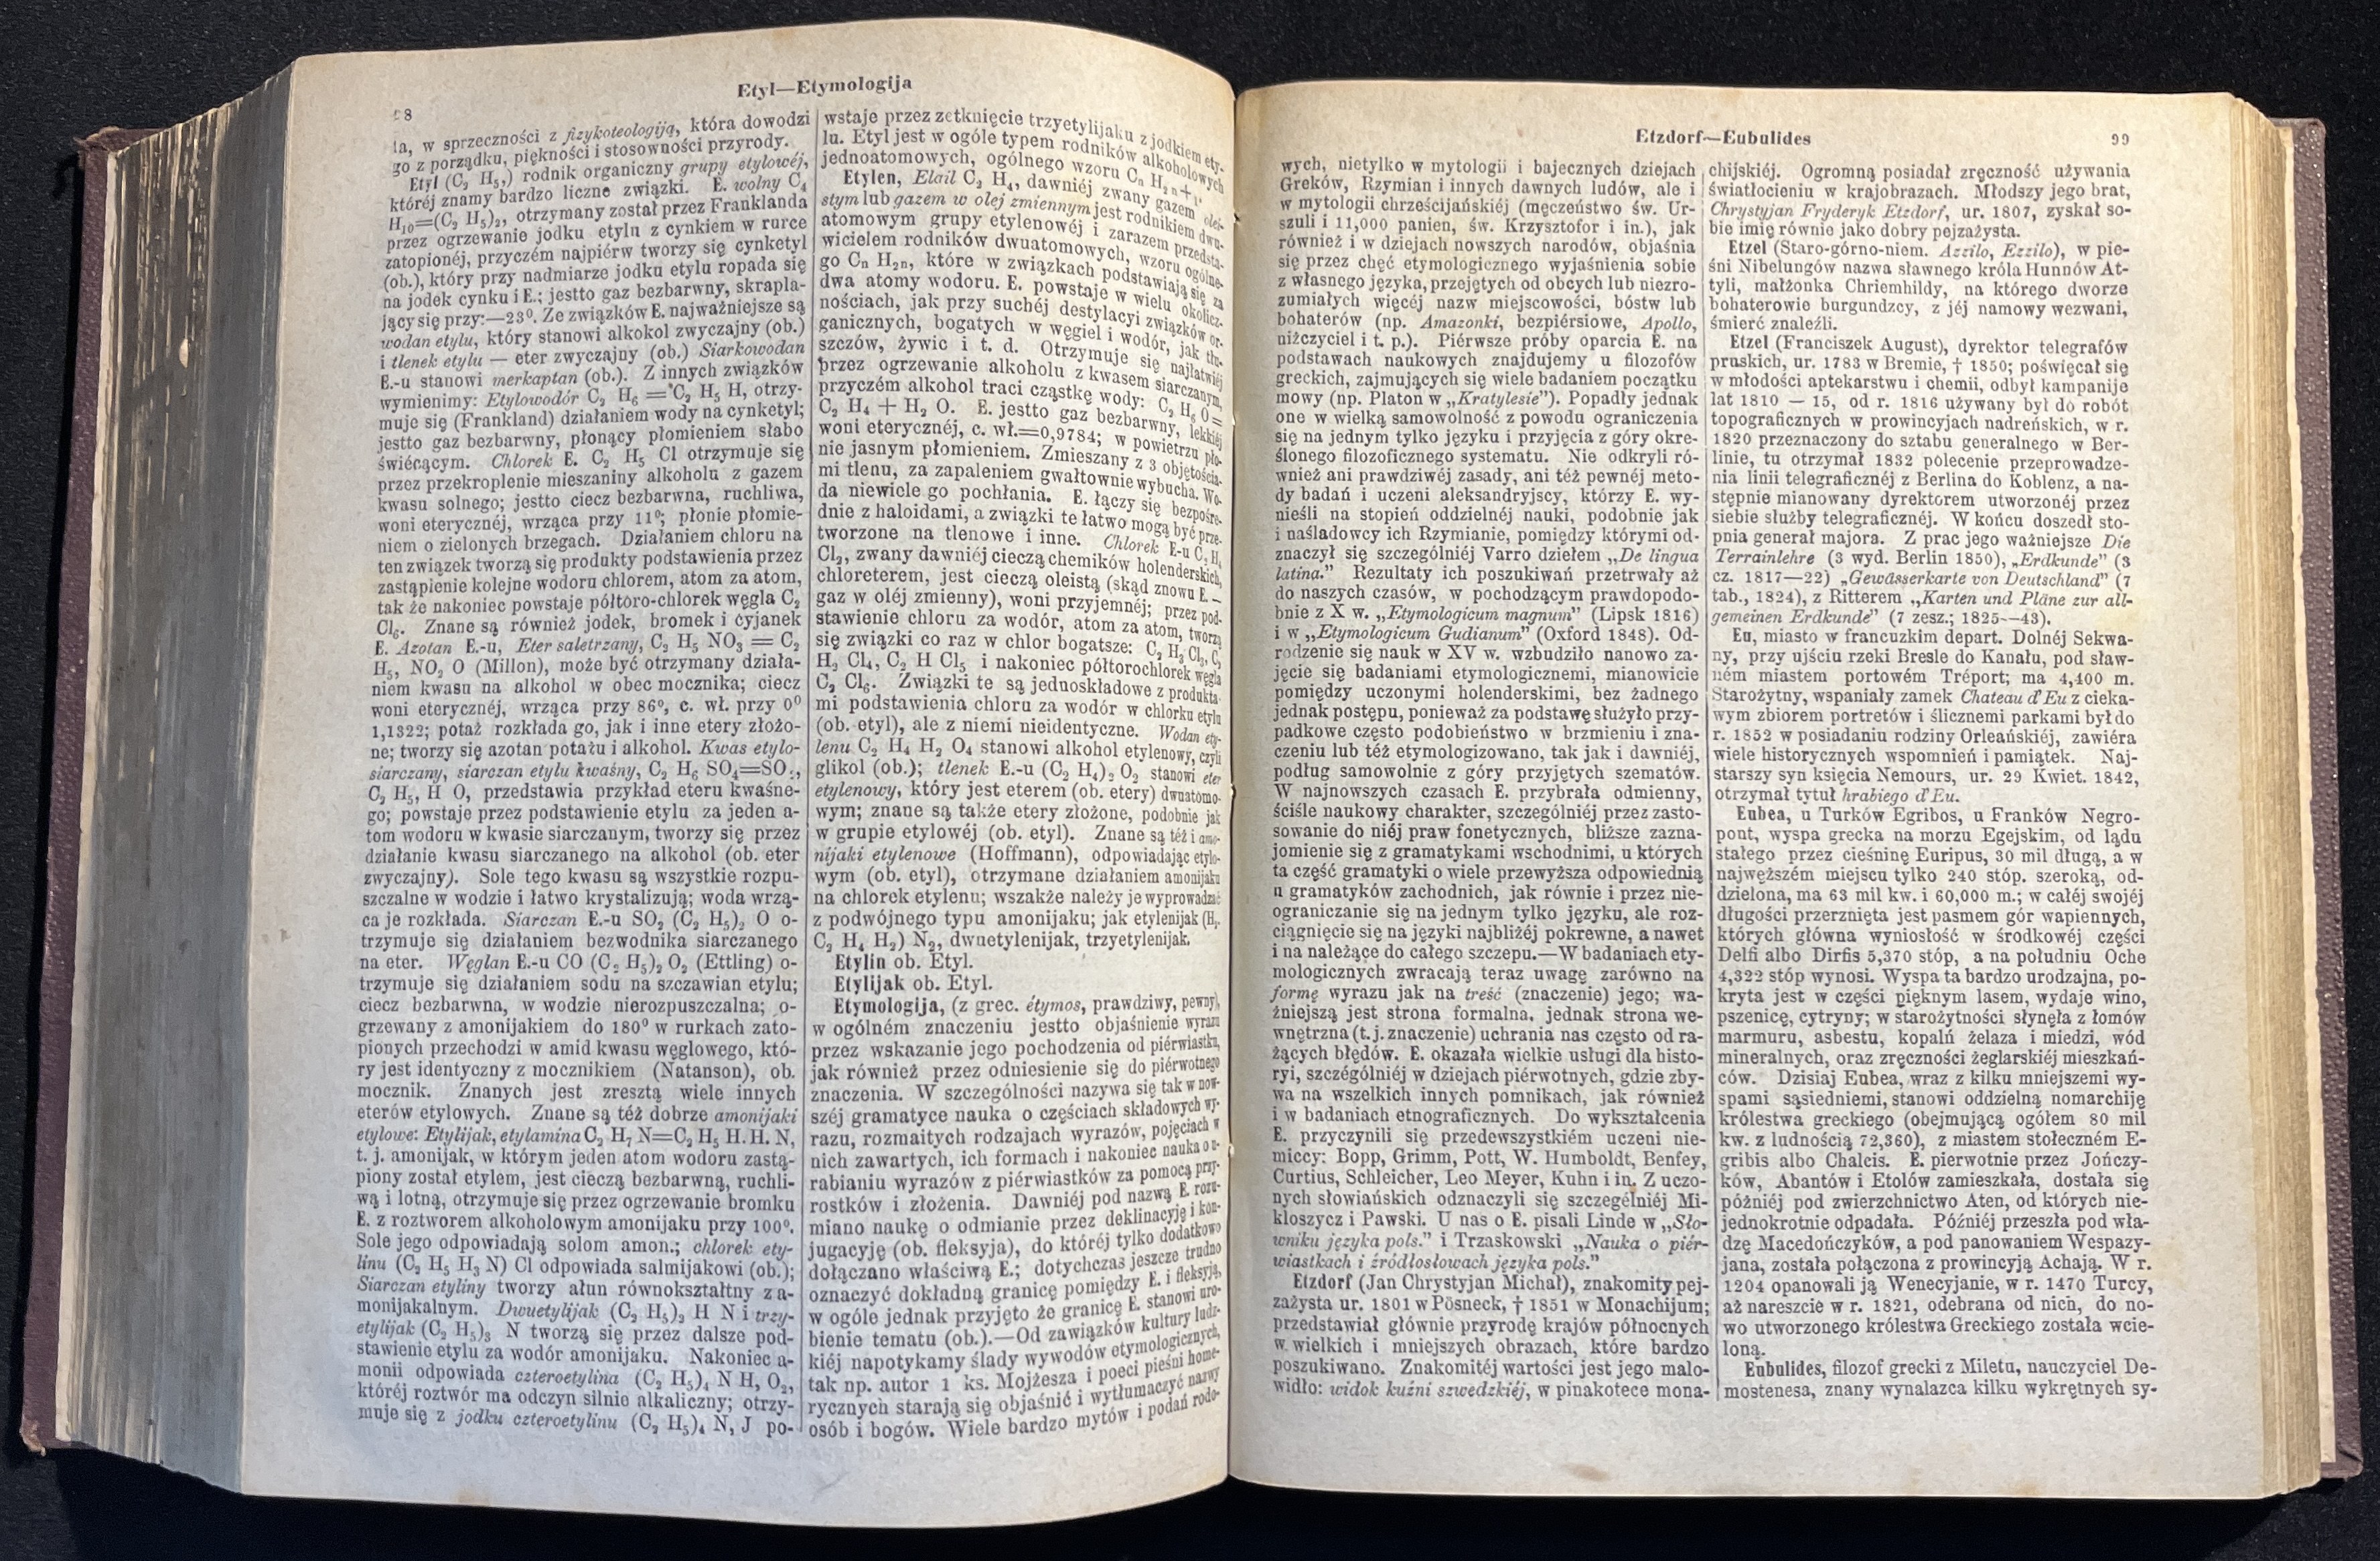 Etyl—Etymologija
98
ła, w sprzeczności z fizykoteologiją, która dowodzi
go z porządku, piękności i stosowności przyrody.
Etyl (C₂ H₅,) rodnik organiczny grupy etylowéj,
któréj znamy bardzo liczne związki. E. wolny C₄
H₁₀=(C₂ H₅)₂, otrzymany został przez Franklanda
przez ogrzewanie jodku etylu z cynkiem w rurce
zatopionéj, przyczém najpiérw tworzy się cynketyl
(ob.), który przy nadmiarze jodku etylu ropada się
na jodek cynku i E.; jestto gaz bezbarwny, skrapla-
jący się przy:—23⁰. Ze związków E. najważniejsze są
wodan etylu, który stanowi alkokol zwyczajny (ob.)
i tlenek etylu — eter zwyczajny (ob.) Siarkowodan
E.-u stanowi merkaptan (ob.). Z innych związków
wymienimy: Etylowodór C₂ H₆ = C₂ H₅ H, otrzy-
muje się (Frankland) działaniem wody na cynketyl;
jestto gaz bezbarwny, płonący płomieniem słabo
świécącym. Chlorek E. C₂ H₅ Cl otrzymuje się
przez przekroplenie mieszaniny alkoholu z gazem
kwasu solnego; jestto ciecz bezbarwna, ruchliwa,
woni eterycznéj, wrząca przy 11⁰; płonie płomie-
niem o zielonych brzegach. Działaniem chloru na
ten związek tworzą się produkty podstawienia przez
zastąpienie kolejne wodoru chlorem, atom za atom,
tak że nakoniec powstaje półtoro-chlorek węgla C₂
Cl₆. Znane są również jodek, bromek i cyjanek
E. Azotan E.-u, Eter saletrzany, C₂ H₅ NO₃ = C₂
H₅, NO₂ O (Millon), może być otrzymany działa-
niem kwasu na alkohol w obec mocznika; ciecz
woni eterycznéj, wrząca przy 86⁰, c. wł. przy 0⁰
1,1322; potaż rozkłada go, jak i inne etery złożo-
ne; tworzy się azotan potażu i alkohol. Kwas etylo-
siarczany, siarczan etylu kwaśny, C₂ H₆ SO₄=SO₃,
C₂ H₅, H O, przedstawia przykład eteru kwaśne-
go; powstaje przez podstawienie etylu za jeden a-
tom wodoru w kwasie siarczanym, tworzy się przez
działanie kwasu siarczanego na alkohol (ob. eter
zwyczajny). Sole tego kwasu są wszystkie rozpu-
szczalne w wodzie i łatwo krystalizują; woda wrzą-
ca je rozkłada. Siarczan E.-u SO₂ (C₂ H₅)₂ O o-
trzymuje się działaniem bezwodnika siarczanego
na eter. Węglan E.-u CO (C₂ H₅)₂ O₂ (Ettling) o-
trzymuje się działaniem sodu na szczawian etylu;
ciecz bezbarwna, w wodzie nierozpuszczalna; o-
grzewany z amonijakiem do 180⁰ w rurkach zato-
pionych przechodzi w amid kwasu węglowego, któ-
ry jest identyczny z mocznikiem (Natanson), ob.
mocznik. Znanych jest zresztą wiele innych
eterów etylowych. Znane są téż dobrze amonijaki
etylowe: Etylijak, etylamina C₂ H₇ N=C₂ H₅ H. H. N,
t. j. amonijak, w którym jeden atom wodoru zastą-
piony został etylem, jest cieczą bezbarwną, ruchli-
wą i lotną, otrzymuje się przez ogrzewanie bromku
E. z roztworem alkoholowym amonijaku przy 100⁰.
Sole jego odpowiadają solom amon.; chlorek ety-
linu (C₂ H₅ H₃ N) Cl odpowiada salmijakowi (ob.);
Siarczan etyliny tworzy ałun równokształtny z a-
monijakalnym. Dwuetylijak (C₂ H₅)₂ H N i trzy-
etylijak (C₂ H₅)₃ N tworzą się przez dalsze pod-
stawienie etylu za wodór amonijaku. Nakoniec a-
monii odpowiada czteroetylina (C₂ H₅)₄ N H, O₂,
któréj roztwór ma odczyn silnie alkaliczny; otrzy-
muje się z jodku czteroetylinu (C₂ H₅)₄ N, J po-
wstaje przez zetknięcie trzyetylijaku z jodkiem ety-
lu. Etyl jest w ogóle typem rodników alkoholowych
jednoatomowych, ogólnego wzoru Cn H₂n+₁.
Etylen, Elail C₂ H₄, dawniéj zwany gazem olei-
stym lub gazem w olej zmiennym jest rodnikiem dwu-
atomowym grupy etylenowéj i zarazem przedsta-
wicielem rodników dwuatomowych, wzoru ogólne-
go Cn H₂n, które w związkach podstawiają się za
dwa atomy wodoru. E. powstaje w wielu okolicz-
nościach, jak przy suchéj destylacyi związków or-
ganicznych, bogatych w węgiel i wodór, jak tłu-
szczów, żywic i t. d. Otrzymuje się najłatwiéj
przez ogrzewanie alkoholu z kwasem siarczanym,
przyczém alkohol traci cząstkę wody: C₂ H₆ O =
C₂ H₄ + H₂ O. E. jestto gaz bezbarwny, lekkiéj
woni eterycznéj, c. wł.=0,9784; w powietrzu pło-
nie jasnym płomieniem. Zmieszany z 3 objętościa-
mi tlenu, za zapaleniem gwałtownie wybucha. Wo-
da niewiele go pochłania. E. łączy się bezpośre-
dnie z haloidami, a związki te łatwo mogą być prze-
tworzone na tlenowe i inne. Chlorek E-u C₂ H₄
Cl₂, zwany dawniéj cieczą chemików holenderskich,
chloreterem, jest cieczą oleistą (skąd znowu E.—
gaz w oléj zmienny), woni przyjemnéj; przez pod-
stawienie chloru za wodór, atom za atom, tworzą
się związki co raz w chlor bogatsze: C₂ H₃ Cl₃, C₂
H₂ Cl₄, C₂ H Cl₅ i nakoniec półtorochlorek węgla
C₂ Cl₆. Związki te są jednoskładowe z produkta-
mi podstawienia chloru za wodór w chlorku etylu
(ob. etyl), ale z niemi nieidentyczne. Wodan ety-
lenu C₂ H₄ H₂ O₄ stanowi alkohol etylenowy, czyli
glikol (ob.); tlenek E.-u (C₂ H₄)₂ O₂ stanowi eter
etylenowy, który jest eterem (ob. etery) dwuatomo-
wym; znane są także etery złożone, podobnie jak
w grupie etylowéj (ob. etyl). Znane są téż i amo-
nijaki etylenowe (Hoffmann), odpowiadając etylo-
wym (ob. etyl), otrzymane działaniem amonijaku
na chlorek etylenu; wszakże należy je wyprowadzać
z podwójnego typu amonijaku; jak etylenijak (H₂.
C₂ H₄ H₂) N₂, dwuetylenijak, trzyetylenijak.
Etylin ob. Etyl.
Etylijak ob. Etyl.
Etymologija, (z grec. étymos, prawdziwy, pewny),
w ogólném znaczeniu jestto objaśnienie wyrazu
przez wskazanie jego pochodzenia od piérwiastku,
jak również przez odniesienie się do piérwotnego
znaczenia. W szczególności nazywa się tak w now-
széj gramatyce nauka o częściach składowych wy-
razu, rozmaitych rodzajach wyrazów, pojęciach w
nich zawartych, ich formach i nakoniec nauka o u-
rabianiu wyrazów z piérwiastków za pomocą przy-
rostków i złożenia. Dawniéj pod nazwą E. rozu-
miano naukę o odmianie przez deklinacyję i kon-
jugacyję (ob. fleksyja), do któréj tylko dodatkowo
dołączano właściwą E.; dotychczas jeszcze trudno
oznaczyć dokładną granicę pomiędzy E. i fleksyją,
w ogóle jednak przyjęto że granicę E. stanowi uro-
bienie tematu (ob.).—Od zawiązków kultury ludz-
kiéj napotykamy ślady wywodów etymologicznych,
tak np. autor 1 ks. Mojżesza i poeci pieśni home-
rycznych starają się objaśnić i wytłumaczyć nazwy
osób i bogów. Wiele bardzo mytów i podań rodo-
Etzdorf—Eubulides
99
wych, nietylko w mytologii i bajecznych dziejach
Greków, Rzymian i innych dawnych ludów, ale i
w mytologii chrześcijańskiéj (męczeństwo św. Ur-
szuli i 11,000 panien, św. Krzysztofor i in.), jak
również i w dziejach nowszych narodów, objaśnia
się przez chęć etymologicznego wyjaśnienia sobie
z własnego języka, przejętych od obcych lub niezro-
zumiałych więcéj nazw miejscowości, bóstw lub
bohaterów (np. Amazonki, bezpiérsiowe, Apollo,
niżczyciel i t. p.). Piérwsze próby oparcia E. na
podstawach naukowych znajdujemy u filozofów
greckich, zajmujących się wiele badaniem początku
mowy (np. Platon w „Kratylesie”). Popadły jednak
one w wielką samowolność z powodu ograniczenia
się na jednym tylko języku i przyjęcia z góry okre-
ślonego filozoficznego systematu. Nie odkryli ró-
wnież ani prawdziwéj zasady, ani téż pewnéj meto-
dy badań i uczeni aleksandryjscy, którzy E. wy-
nieśli na stopień oddzielnéj nauki, podobnie jak
i naśladowcy ich Rzymianie, pomiędzy którymi od-
znaczył się szczególniéj Varro dziełem „De lingua
latina.” Rezultaty ich poszukiwań przetrwały aż
do naszych czasów, w pochodzącym prawdopodo-
bnie z X w. „Etymologicum magnum” (Lipsk 1816)
i w „Etymologicum Gudianum” (Oxford 1848). Od-
rodzenie się nauk w XV w. wzbudziło nanowo za-
jęcie się badaniami etymologicznemi, mianowicie
pomiędzy uczonymi holenderskimi, bez żadnego
jednak postępu, ponieważ za podstawę służyło przy-
padkowe często podobieństwo w brzmieniu i zna-
czeniu lub téż etymologizowano, tak jak i dawniéj,
podług samowolnie z góry przyjętych szematów.
W najnowszych czasach E. przybrała odmienny,
ściśle naukowy charakter, szczególniéj przez zasto-
sowanie do niéj praw fonetycznych, bliższe zazna-
jomienie się z gramatykami wschodnimi, u których
ta część gramatyki o wiele przewyższa odpowiednią
u gramatyków zachodnich, jak równie i przez nie-
ograniczanie się na jednym tylko języku, ale roz-
ciągnięcie się na języki najbliżéj pokrewne, a nawet
i na należące do całego szczepu.—W badaniach ety-
mologicznych zwracają teraz uwagę zarówno na
formę wyrazu jak na treść (znaczenie) jego; wa-
żniejszą jest strona formalna, jednak strona we-
wnętrzna (t. j. znaczenie) uchrania nas często od ra-
żących błędów. E. okazała wielkie usługi dla histo-
ryi, szczególniéj w dziejach piérwotnych, gdzie zby-
wa na wszelkich innych pomnikach, jak również
i w badaniach etnograficznych. Do wykształcenia
E. przyczynili się przedewszystkiém uczeni nie-
mieccy: Bopp, Grimm, Pott, W. Humboldt, Benfey,
Curtius, Schleicher, Leo Meyer, Kuhn i in. Z uczo-
nych słowiańskich odznaczyli się szczególniéj Mi-
kloszycz i Pawski. U nas o E. pisali Linde w „Sło-
wniku języka pols.” i Trzaskowski „Nauka o piér-
wiastkach i źródłosłowach języka pols.”
Etzdorf (Jan Chrystyjan Michał), znakomity pej-
zażysta ur. 1801 w Pösneck, † 1851 w Monachijum;
przedstawiał głównie przyrodę krajów północnych
w wielkich i mniejszych obrazach, które bardzo
poszukiwano. Znakomitéj wartości jest jego malo-
widło: widok kuźni szwedzkiéj, w pinakotece mona-
chijskiéj. Ogromną posiadał zręczność używania
światłocieniu w krajobrazach. Młodszy jego brat,
Chrystyjan Fryderyk Etzdorf, ur. 1807, zyskał so-
bie imię równie jako dobry pejzażysta.
Etzel (Staro-górno-niem. Azzilo, Ezzilo), w pie-
śni Nibelungów nazwa sławnego króla Hunnów At-
tyli, małżonka Chriemhildy, na którego dworze
bohaterowie burgundzcy, z jéj namowy wezwani,
śmierć znaleźli.
Etzel (Franciszek August), dyrektor telegrafów
pruskich, ur. 1783 w Bremie, † 1850; poświęcał się
w młodości aptekarstwu i chemii, odbył kampanije
lat 1810 — 15, od r. 1816 używany był do robót
topograficznych w prowincyjach nadreńskich, w r.
1820 przeznaczony do sztabu generalnego w Ber-
linie, tu otrzymał 1832 polecenie przeprowadze-
nia linii telegraficznéj z Berlina do Koblenz, a na-
stępnie mianowany dyrektorem utworzonéj przez
siebie służby telegraficznéj. W końcu doszedł sto-
pnia generał majora. Z prac jego ważniejsze Die
Terrainlehre (3 wyd. Berlin 1850), „Erdkunde” (3
cz. 1817—22) „Gewässerkarte von Deutschland” (7
tab., 1824), z Ritterem „Karten und Pläne zur all-
gemeinen Erdkunde” (7 zesz.; 1825—43).
Eu, miasto w francuzkim depart. Dolnéj Sekwa-
ny, przy ujściu rzeki Bresle do Kanału, pod sław-
ném miastem portowém Tréport; ma 4,400 m.
Starożytny, wspaniały zamek Chateau d'Eu z cieka-
wym zbiorem portretów i ślicznemi parkami był do
r. 1852 w posiadaniu rodziny Orleańskiéj, zawiéra
wiele historycznych wspomnień i pamiątek. Naj-
starszy syn księcia Nemours, ur. 29 Kwiet. 1842,
otrzymał tytuł hrabiego d'Eu.
Eubea, u Turków Egribos, u Franków Negro-
pont, wyspa grecka na morzu Egejskim, od lądu
stałego przez cieśninę Euripus, 30 mil długą, a w
najwęższém miejscu tylko 240 stóp. szeroką, od-
dzielona, ma 63 mil kw. i 60,000 m.; w całéj swojéj
długości przerznięta jest pasmem gór wapiennych,
których główna wyniosłość w środkowéj części
Delfi albo Dirfis 5,370 stóp, a na południu Oche
4,322 stóp wynosi. Wyspa ta bardzo urodzajna, po-
kryta jest w części pięknym lasem, wydaje wino,
pszenicę, cytryny; w starożytności słynęła z łomów
marmuru, asbestu, kopalń żelaza i miedzi, wód
mineralnych, oraz zręczności żeglarskiéj mieszkań-
ców. Dzisiaj Eubea, wraz z kilku mniejszemi wy-
spami sąsiedniemi, stanowi oddzielną nomarchiję
królestwa greckiego (obejmującą ogółem 80 mil
kw. z ludnością 72,360), z miastem stołeczném E-
gribis albo Chalcis. E. pierwotnie przez Jończy-
ków, Abantów i Etolów zamieszkała, dostała się
późniéj pod zwierzchnictwo Aten, od których nie-
jednokrotnie odpadała. Późniéj przeszła pod wła-
dzę Macedończyków, a pod panowaniem Wespazy-
jana, została połączona z prowincyją Achają. W r.
1204 opanowali ją Wenecyjanie, w r. 1470 Turcy,
aż nareszcie w r. 1821, odebrana od nich, do no-
wo utworzonego królestwa Greckiego została wcie-
loną.
Eubulides, filozof grecki z Miletu, nauczyciel De-
mostenesa, znany wynalazca kilku wykrętnych sy-